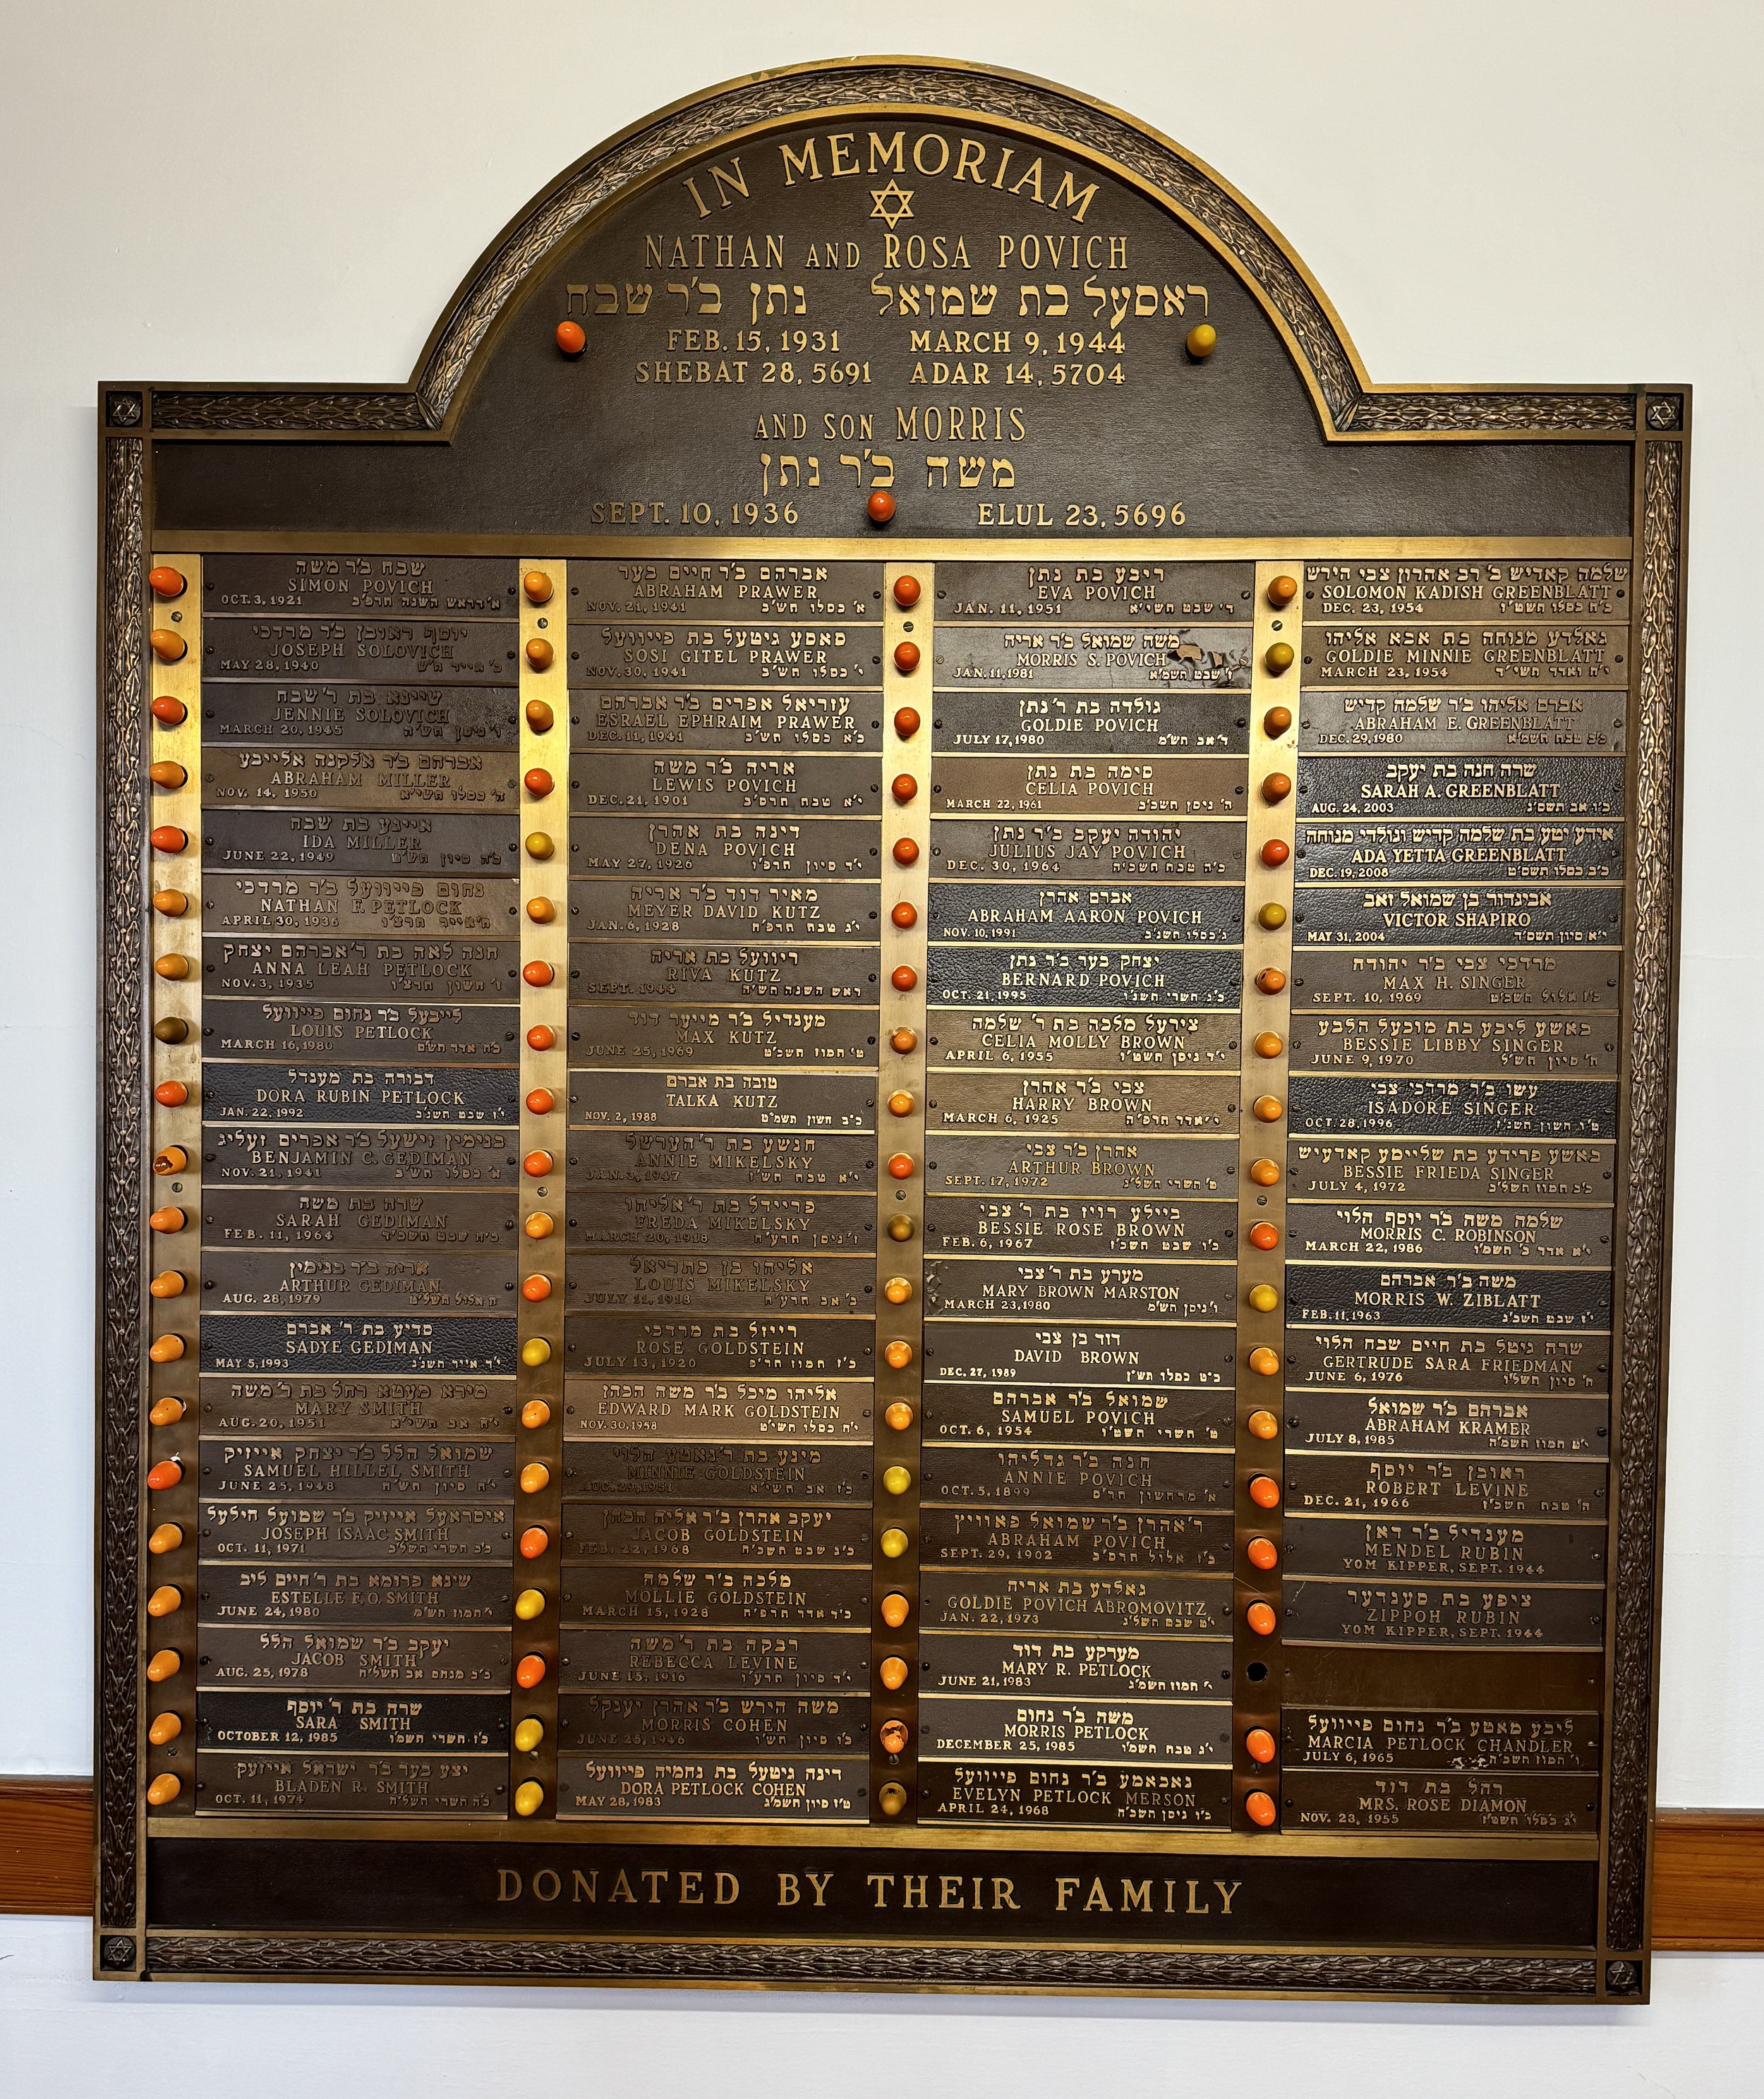 IN MEMORIAM
NATHAN AND ROSA POVICH
נתן ב'ר שבח ראסעל בת שמואל
FEB. 15, 1931 MARCH 9, 1944
SHEBAT 28, 5691 ADAR 14, 5704
AND SON MORRIS
משה ב'ר נתן
SEPT. 10, 1936 ELUL 23, 5696
שבח ב'ר משה
SIMON POVICH
OCT. 3, 1921 א' דראש השנה תרפ"ב
יוסף ראובן ב'ר מרדכי
JOSEPH SOLOVICH
MAY 28, 1940 כ' אייר ת"ש
שיינא בת ר' שבח
JENNIE SOLOVICH
MARCH 20, 1945 ו' ניסן תש"ה
אברהם ב'ר אלקנה אלייבע
ABRAHAM MILLER
NOV. 14, 1950 ה' כסלו תשי"א
אייגע בת שבח
IDA MILLER
JUNE 22, 1949 כ"ה סיון תש"ט
נחום פייוועל ב'ר מרדכי
NATHAN F. PETLOCK
APRIL 30, 1936 ח' אייר תרצ"ו
חנה לאה בת ר' אברהם יצחק
ANNA LEAH PETLOCK
NOV. 3, 1935 ז' חשון תרצ"ו
לייבעל ב'ר נחום פייוועל
LOUIS PETLOCK
MARCH 16, 1980 כ"ח אדר תש"ם
דבורה בת מענדל
DORA RUBIN PETLOCK
JAN. 22, 1992 י"ז שבט תשנ"ב
בנימין זישעל ב'ר אפרים זעליג
BENJAMIN C. GEDIMAN
NOV. 21, 1941 א' כסלו תש"ב
שרה בת משה
SARAH GEDIMAN
FEB. 11, 1964 כ"ח שבט תשכ"ד
אריה ב'ר בנימין
ARTHUR GEDIMAN
AUG. 28, 1979 ה אלול תשל"ט
סדיע בת ר' אברם
SADYE GEDIMAN
MAY 5, 1993 י"ד אייר תשנ"ג
מירא מעטא רחל בת ר' משה
MARY SMITH
AUG. 20, 1951 י"ח אב תשי"א
שמואל הלל ב'ר יצחק אייזיק
SAMUEL HILLEL SMITH
JUNE 25, 1948 י"ח סיון תש"ח
איסראעל אייזיק ב'ר שמועל הילעל
JOSEPH ISAAC SMITH
OCT. 11, 1971 כ"ב תשרי תשל"ב
שינא פרומא בת ר' חיים ליב
ESTELLE F.O. SMITH
JUNE 24, 1980 י' תמוז תש"מ
יעקב ב'ר שמואל הלל
JACOB SMITH
AUG. 25, 1978 כ"ב מנחם אב תשל"ח
שרה בת ר' יוסף
SARA SMITH
OCTOBER 12, 1985 כ"ז תשרי תשמ"ו
יצע בער ב'ר ישראל אייזעק
BLADEN R. SMITH
OCT. 11, 1974 כ"ה תשרי תשל"ה
אברהם ב'ר חיים בער
ABRAHAM PRAWER
NOV. 21, 1941 א' כסלו תש"ב
סאסע גיטעל בת פייוועל
SOSI GITEL PRAWER
NOV. 30, 1941 י' כסלו תש"ב
עזריאל אפרים ב'ר אברהם
ESRAEL EPHRAIM PRAWER
DEC. 11, 1941 כ"א כסלו תש"ב
אריה ב'ר משה
LEWIS POVICH
DEC. 21, 1901 י"א טבת תרס"ב
דינה בת אהרן
DENA POVICH
MAY 27, 1926 י"ד סיון תרפ"ו
מאיר דוד ב'ר אריה
MEYER DAVID KUTZ
JAN. 6, 1928 י"ג טבת תרפ"ח
ריוועל בת אריה
RIVA KUTZ
SEPT. 1944 ראש השנה תש"ה
מענדיל ב'ר מייער דוד
MAX KUTZ
JUNE 25, 1969 ט' תמוז תשכ"ט
טובה בת אברם
TALKA KUTZ
NOV. 2, 1988 כ"ב חשון תשמ"ט
חנשע בת ר' הערשל
ANNIE MIKELSKY
JAN. 3, 1947 י"א טבת תש"ז
פריידל בת ר' אליהו
FREDA MIKELSKY
MARCH 20, 1918 ז' ניסן תרע"ח
אליהו בן כתריאל
LOUIS MIKELSKY
JULY 11, 1918 ב' אב תרע"ח
רייזל בת מרדכי
ROSE GOLDSTEIN
JULY 13, 1920 כ"ז תמוז תר"פ
אליהו מיכל ב'ר משה הכהן
EDWARD MARK GOLDSTEIN
NOV. 30, 1958 י"ח כסלו תשי"ט
מינע בת ר' נאטע הלוי
MINNIE GOLDSTEIN
AUG. 29, 1951 כ"ז אב תשי"א
יעקב אהרן ב'ר אליה הכהן
JACOB GOLDSTEIN
FEB. 22, 1968 כ"ג שבט תשכ"ח
מלכה ב'ר שלמה
MOLLIE GOLDSTEIN
MARCH 15, 1928 כ"ד אדר תרפ"ח
רבקה בת ר' משה
REBECCA LEVINE
JUNE 15, 1916 י"ד סיון תרע"ו
משה הירש ב'ר אהרן יענקל
MORRIS COHEN
JUNE 25, 1946 כ"ו סיון תש"ו
דינה גיטעל בת נחמיה פייוועל
DORA PETLOCK COHEN
MAY 28, 1983 ט"ז סיון תשמ"ג
ריבע בת נתן
EVA POVICH
JAN. 11, 1951 ד' שבט תשי"א
משה שמואל ב'ר אריה
MORRIS S. POVICH
JAN. 11, 1981 ז' שבט תשמ"א
גולדה בת ר' נתן
GOLDIE POVICH
JULY 17, 1980 ד' אב תש"מ
סימה בת נתן
CELIA POVICH
MARCH 22, 1961 ה' ניסן תשכ"ב
יהודה יעקב ב'ר נתן
JULIUS JAY POVICH
DEC. 30, 1964 כ"ה טבת תשכ"ה
אברם אהרן
ABRAHAM AARON POVICH
NOV. 10, 1991 ג' כסלו תשנ"ב
יצחק בער ב'ר נתן
BERNARD POVICH
OCT. 21, 1995 כ"ג תשרי תשנ"ו
צירעל מלכה בת ר' שלמה
CELIA MOLLY BROWN
APRIL 6, 1955 י"ד ניסן תשט"ו
צבי ב'ר אהרן
HARRY BROWN
MARCH 6, 1925 י' אדר תרפ"ה
אהרן ב'ר צבי
ARTHUR BROWN
SEPT. 17, 1972 ט' תשרי תשל"ג
ביילע רויז בת ר' צבי
BESSIE ROSE BROWN
FEB. 6, 1967 כ"ו שבט תשכ"ז
מערע בת ר' צבי
MARY BROWN MARSTON
MARCH 23, 1980 ו' ניסן תש"מ
דוד בן צבי
DAVID BROWN
DEC. 27, 1989 כ"ט כסלו תש"ן
שמואל ב'ר אברהם
SAMUEL POVICH
OCT. 6, 1954 ט' תשרי תשט"ו
חנה ב'ר גדליהו
ANNIE POVICH
OCT. 5, 1899 א' מרחשון תר"ס
ר' אהרן ב'ר שמואל פאוויץ
ABRAHAM POVICH
SEPT. 29, 1902 כ"ז אלול תרס"ב
גאלדע בת אריה
GOLDIE POVICH ABROMOVITZ
JAN. 22, 1973 י"ט שבט תשל"ג
מערקע בת דוד
MARY R. PETLOCK
JUNE 21, 1983 י' תמוז תשמ"ג
משה ב'ר נחום
MORRIS PETLOCK
DECEMBER 25, 1985 י"ג טבת תשמ"ו
נאכאמע ב'ר נחום פייוועל
EVELYN PETLOCK MERSON
APRIL 24, 1968 כ"ו ניסן תשכ"ח
שלמה קאדיש ב'ר רב אהרון צבי הירש
SOLOMON KADISH GREENBLATT
DEC. 23, 1954 כ"ח כסלו תשט"ו
גאלדע מנוחה בת אבא אליהו
GOLDIE MINNIE GREENBLATT
MARCH 23, 1954 י"ח ואדר תשי"ד
אברם אליהו ב'ר שלמה קדיש
ABRAHAM E. GREENBLATT
DEC. 29, 1980 כ"ב טבת תשמ"א
שרה חנה בת יעקב
SARAH A. GREENBLATT
AUG. 24, 2003 כ"ו אב תשס"ג
אידע יטע בת שלמה קדיש וגולדי מנוחה
ADA YETTA GREENBLATT
DEC. 19, 2008 כ"ב כסלו תשס"ט
אביגדור בן שמואל זאב
VICTOR SHAPIRO
MAY 31, 2004 י"א סיון תשס"ד
מרדכי צבי ב'ר יהודה
MAX H. SINGER
SEPT. 10, 1969 כ"ז אלול תשכ"ט
באשע ליבע בת מיכעל הלבע
BESSIE LIBBY SINGER
JUNE 9, 1970 ה' סיון תש"ל
עשו ב'ר מרדכי צבי
ISADORE SINGER
OCT. 28, 1996 ט"ו חשון תשנ"ז
באשע פרידע בת שליימע קאדעיש
BESSIE FRIEDA SINGER
JULY 4, 1972 כ"ב תמוז תשל"ב
שלמה משה ב'ר יוסף הלוי
MORRIS C. ROBINSON
MARCH 22, 1986 י"א אדר ב' תשמ"ו
משה ב'ר אברהם
MORRIS W. ZIBLATT
FEB. 11, 1963 י"ז שבט תשכ"ג
שרה גיטל בת חיים שבח הלוי
GERTRUDE SARA FRIEDMAN
JUNE 6, 1976 ח' סיון תשל"ו
אברהם ב'ר שמואל
ABRAHAM KRAMER
JULY 8, 1985 י"ט תמוז תשמ"ה
ראובן ב'ר יוסף
ROBERT LEVINE
DEC. 21, 1966 ח' טבת תשכ"ז
מענדיל ב'ר דאן
MENDEL RUBIN
YOM KIPPER, SEPT. 1944
ציפע בת סענדער
ZIPPOH RUBIN
YOM KIPPER, SEPT. 1944
ליבע מאטע ב'ר נחום פייוועל
MARCIA PETLOCK CHANDLER
JULY 6, 1965 ו' תמוז תשכ"ה
רהל בת דוד
MRS. ROSE DIAMON
NOV. 28, 1955 י"ג כסלו תשט"ז
DONATED BY THEIR FAMILY